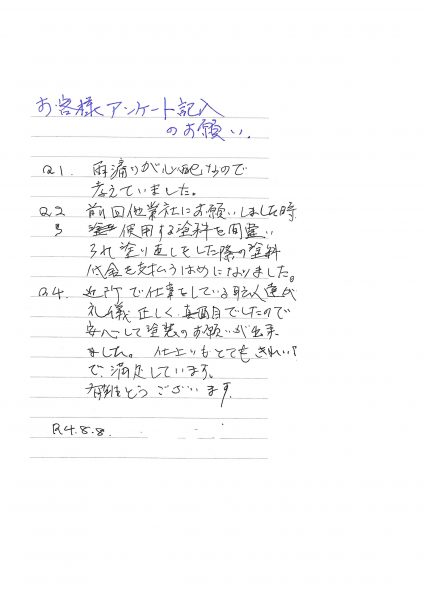 お客様アンケート記入
のお願い.
Q1. 雨漏りが心配なので
考えていました。
Q2 前回他業社にお願いしました時
3 使用する塗料を間違い
られ塗り直しをした際の塗料
代金を支払うはめになりました。
Q4. 近所で仕事をしている職人達が
礼儀正しく真面目でしたので
安心して塗装のお願いが出来
ました。 仕上りもとてもきれい
で満足しています。
有難とうございます.
R4.8.8.